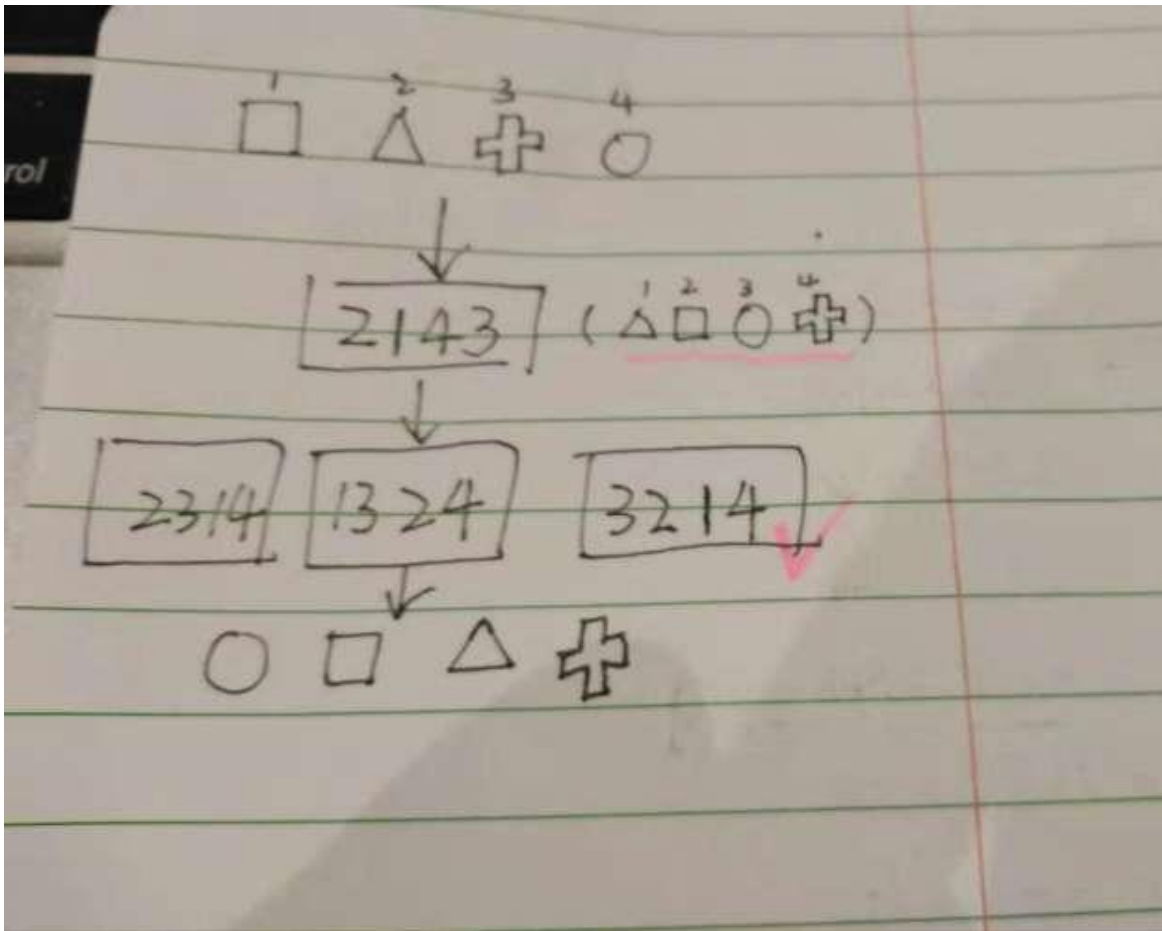 rol
1 2 3 4
2143 ( 1 2 3 4 )
2314 1324 3214